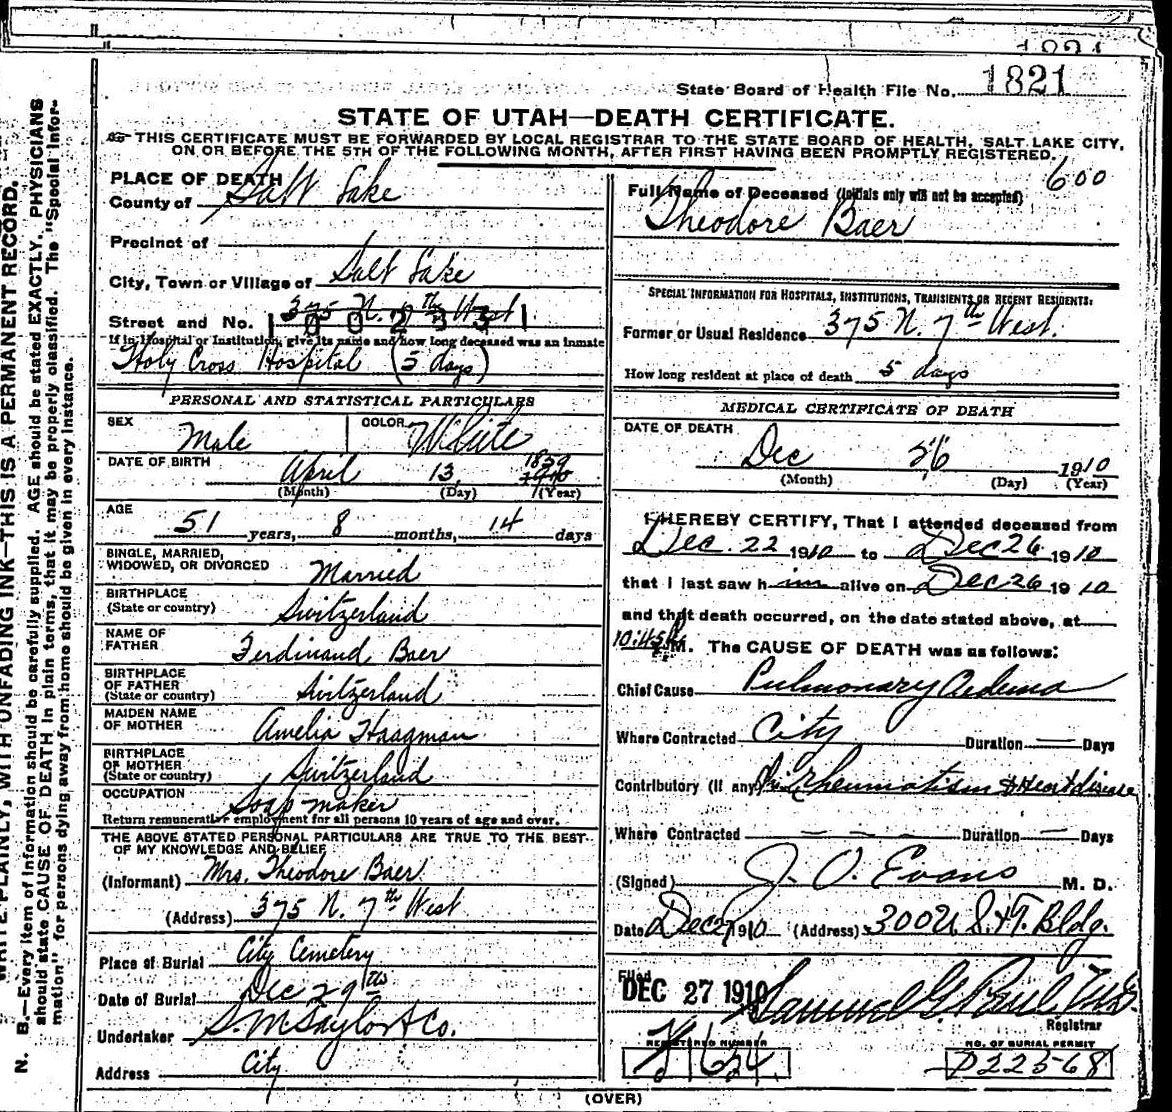 1821
State Board of Health File No. 1821
STATE OF UTAH—DEATH CERTIFICATE.
THIS CERTIFICATE MUST BE FORWARDED BY LOCAL REGISTRAR TO THE STATE BOARD OF HEALTH, SALT LAKE CITY,
ON OR BEFORE THE 5TH OF THE FOLLOWING MONTH, AFTER FIRST HAVING BEEN PROMPTLY REGISTERED.
N. B.—Every item of information should be carefully supplied. AGE should be stated EXACTLY. PHYSICIANS
should state CAUSE OF DEATH in plain terms, that it may be properly classified. The "Special Infor-
mation" for persons dying away from home should be given in every instance.
WRITE PLAINLY, WITH UNFADING INK—THIS IS A PERMANENT RECORD.
PLACE OF DEATH
County of Salt Lake
Precinct of
City, Town or Village of Salt Lake
Street and No. 375 N. 7th West
If in Hospital or Institution, give its name and how long deceased was an inmate
Holy Cross Hospital (5 days)
PERSONAL AND STATISTICAL PARTICULARS
SEX Male COLOR White
DATE OF BIRTH April 13, 1859
(Month) (Day) (Year)
AGE
51 years, 8 months, 14 days
SINGLE, MARRIED,
WIDOWED, OR DIVORCED Married
BIRTHPLACE
(State or country) Switzerland
NAME OF
FATHER Ferdinand Baer
BIRTHPLACE
OF FATHER
(State or country) Switzerland
MAIDEN NAME
OF MOTHER Amelia Haagman
BIRTHPLACE
OF MOTHER
(State or country) Switzerland
OCCUPATION Soap maker
Return remunerative employment for all persons 10 years of age and over.
THE ABOVE STATED PERSONAL PARTICULARS ARE TRUE TO THE BEST
OF MY KNOWLEDGE AND BELIEF
(Informant) Mrs. Theodore Baer
(Address) 375 N. 7th West
Place of Burial City Cemetery
Date of Burial Dec 29th
Undertaker S. M. Taylor & Co.
Address City
600
Full Name of Deceased (Initials only will not be accepted)
Theodore Baer
SPECIAL INFORMATION FOR HOSPITALS, INSTITUTIONS, TRANSIENTS OR RECENT RESIDENTS:
Former or Usual Residence 375 N. 7th West.
How long resident at place of death 5 days
MEDICAL CERTIFICATE OF DEATH
DATE OF DEATH
Dec 26 1910
(Month) (Day) (Year)
I HEREBY CERTIFY, That I attended deceased from
Dec. 22 1910 to Dec 26 1910
that I last saw him alive on Dec 26 1910
and that death occurred, on the date stated above, at
10:45 M. The CAUSE OF DEATH was as follows:
Chief Cause Pulmonary Oedema
Where Contracted City Duration — Days
Contributory (If any) Rheumatism & Heart disease
Where Contracted — — — Duration — Days
(Signed) J. O. Evans M. D.
Date Dec 27 1910 (Address) Bldg.
Filed
DEC 27 1910 Samuel G. Paul
Registrar
REGISTERED NUMBER NO. OF BURIAL PERMIT
(OVER)